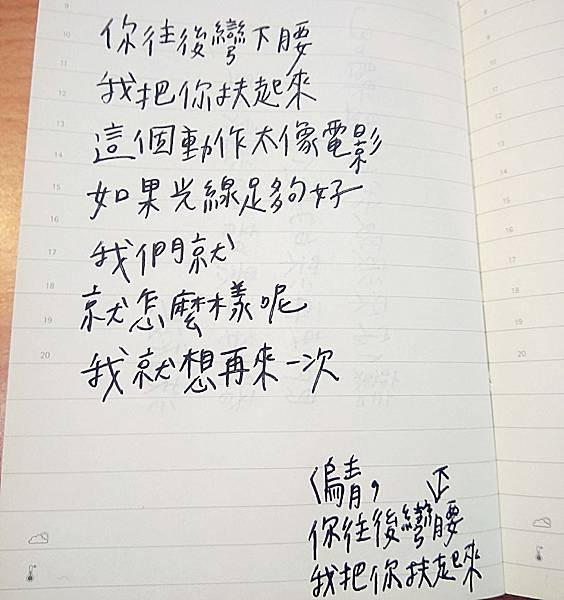 你往後彎下腰
我把你扶起來
這個動作太像電影
如果光線足夠好
我們就
就怎麼樣呢
我就想再來一次
〈烏青,
你往後彎下腰
我把你扶起來
9
10
11
12
13
14
15
16
17
18
19
20
8
9
10
20